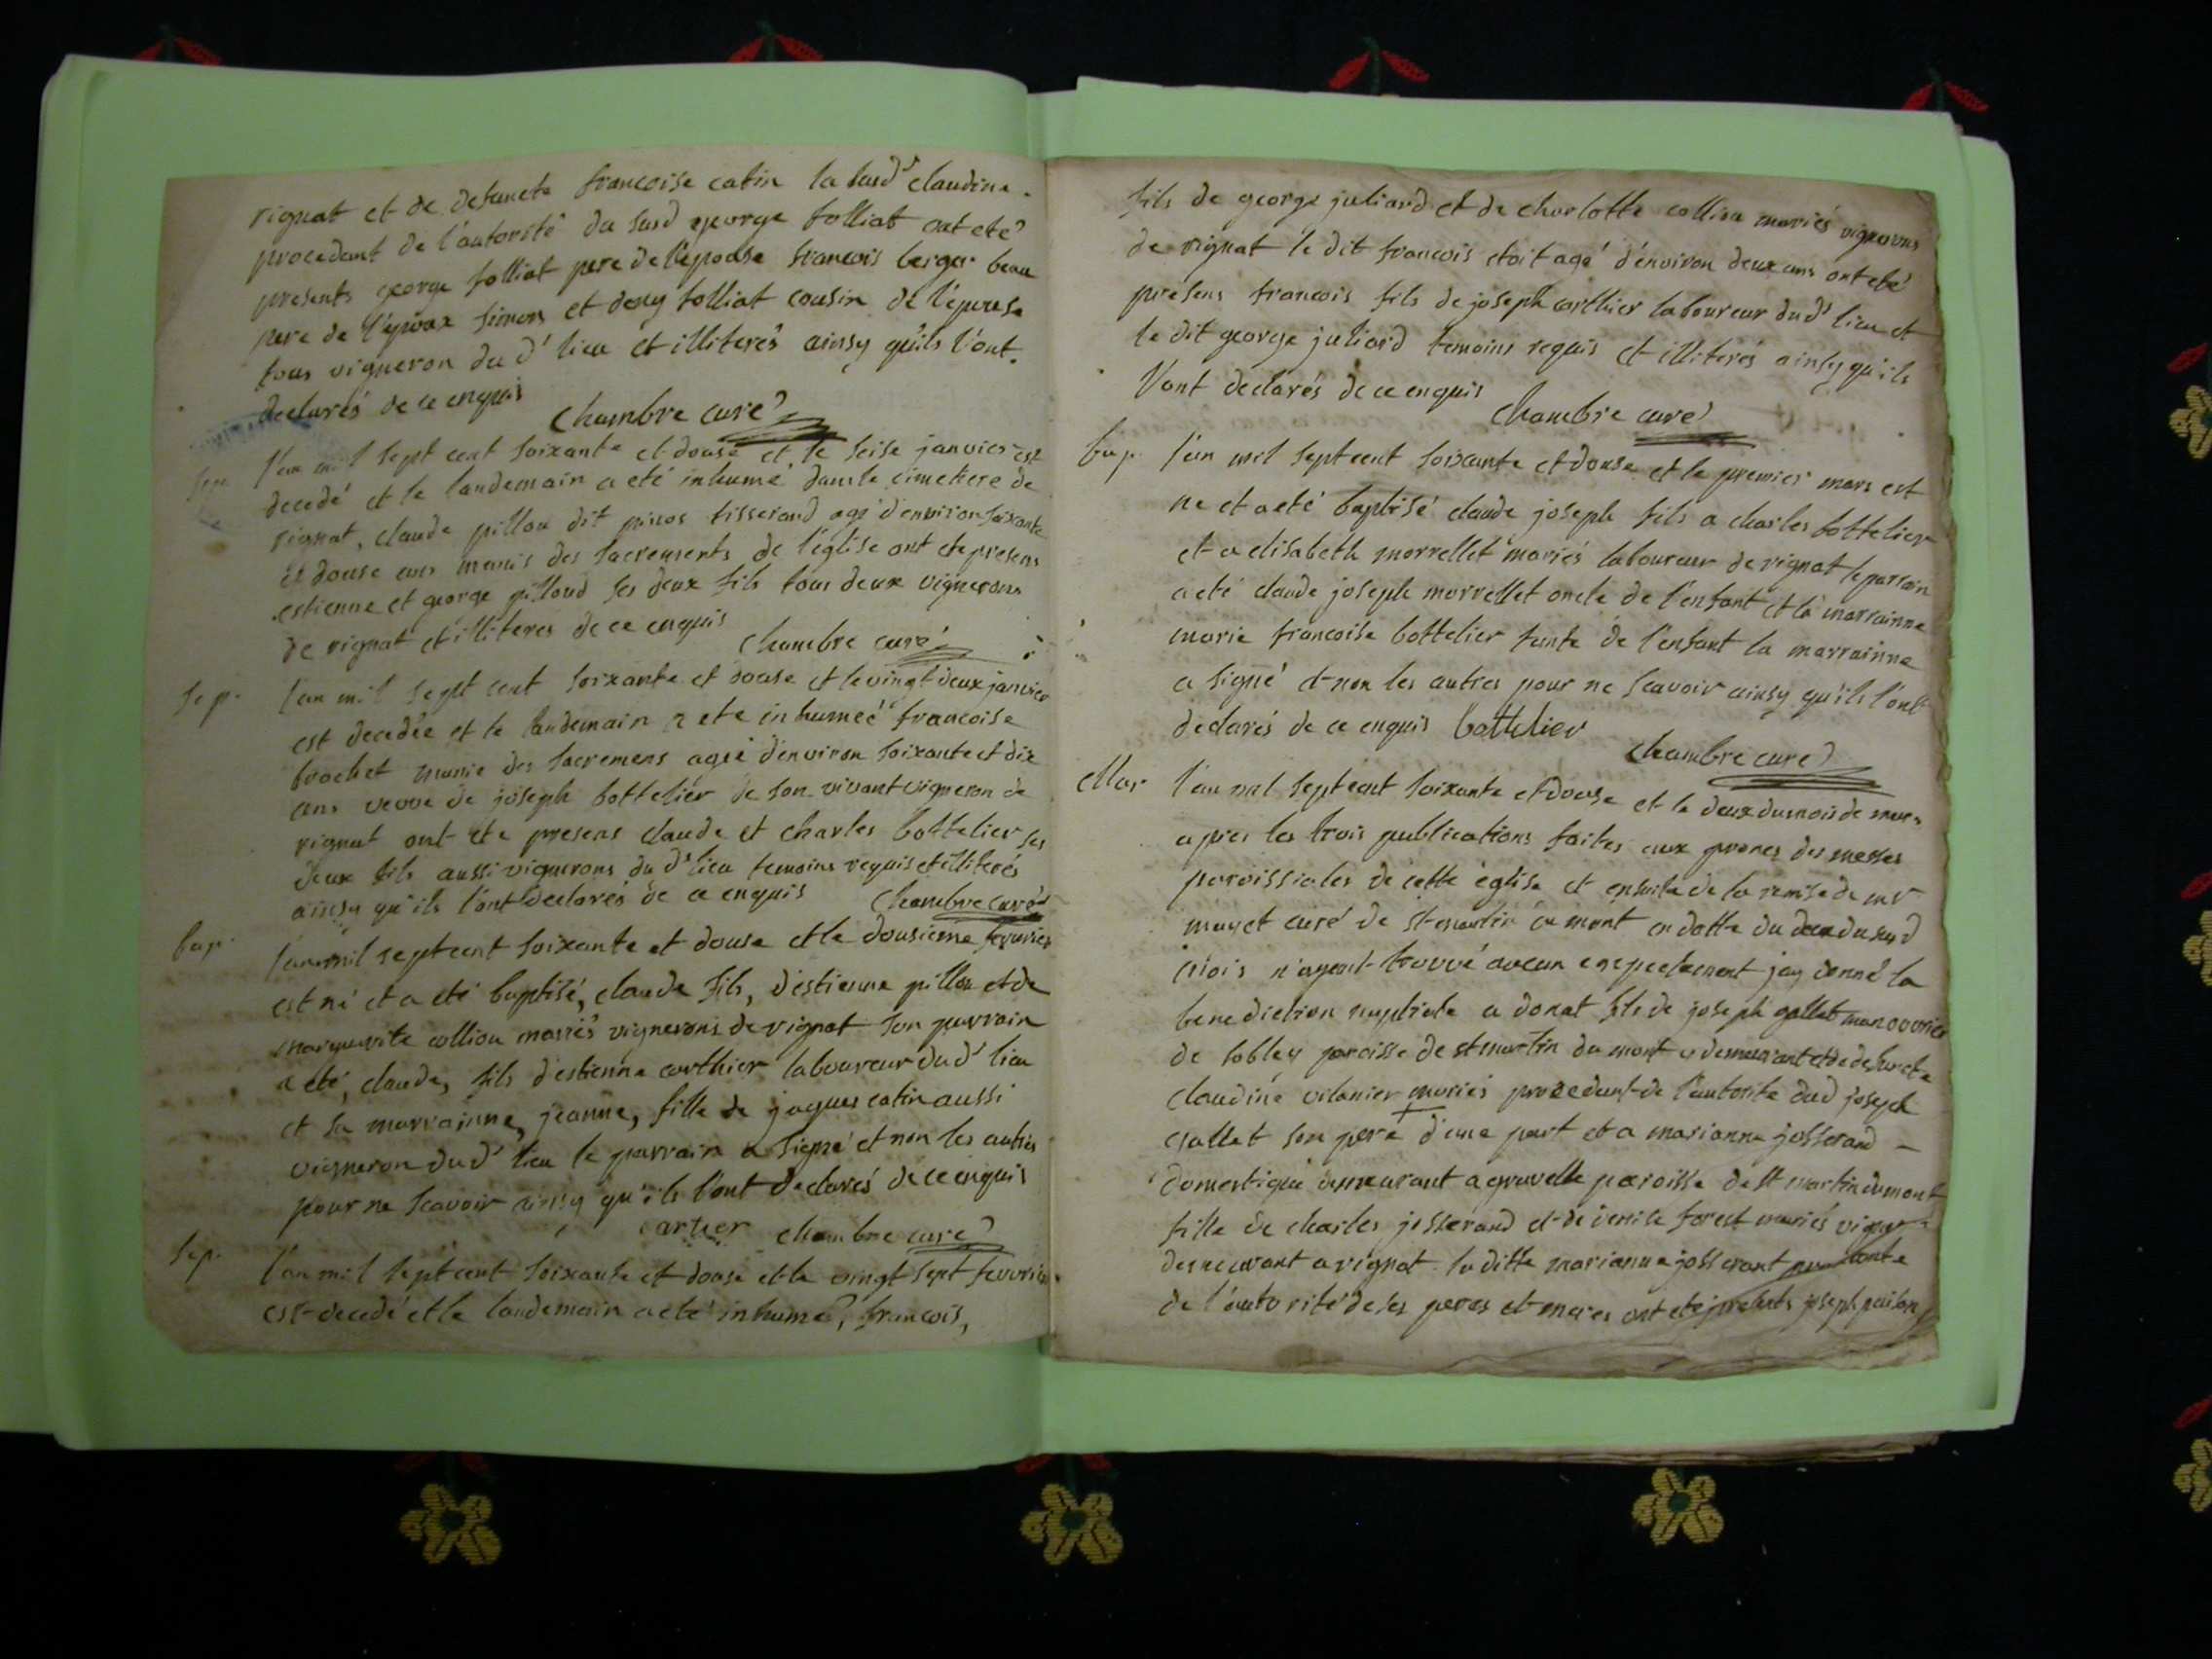 rignat et de defuncte francoise catin la susd^e claudine
procedant de l'autorité du susd george folliat ont eté
presents george folliat pere de l'epouse francois berger beau
pere de l'epoux simon et deny folliat cousin de l'epouse
tous vigneron du d^t lieu et illiterés ainsy qu'ils l'ont
declarés de ce enquis
chambre curé
sep. l'an mil sept cent soixante et douse et le seise janvier est
decedé et le landemain a eté inhumé dans le cimetiere de
rignat, claude pillou dit tisserand agé d'environ soixante
et douse ans munis des sacrements de l'église ont ete presens
estienne et george pilloud ses deux fils tous deux vignerons
de rignat et illiteres de ce enquis
chambre curé
sep. l'an mil sept cent soixante et douse et le vingt deux janvier
est decedée et le landemain a ete inhumeé francoise
brochet munie des sacremens ageé d'environ soixante et dix
ans veuve de joseph bottelier de son vivant vigneron de
rignat ont ete presens claude et charles bottelier ses
deux fils aussi vignerons du d^t lieu temoins requis et illiterés
ainsy qu'ils l'ont declarés de ce enquis chambre curé
bap. l'an mil sept cent soixante et douse et le dousieme fevrier
est né et a eté baptisé, claude fils, d'estienne pillou et de
marguerite colliou mariés vignerons de rignat son parrain
a eté, claude, fils d'estienne carthier laboureur du d^t lieu
et sa marrainne, jeanne, fille de jaques catin aussi
vigneron du d^t lieu le parrain a signé et non les autres
pour ne scavoir ainsy qu'ils l'ont declarés de ce enquis
cartier chambre curé
sep. l'an mil sept cent soixante et douse et le vingt sept fevrier
est decedé et le landemain a eté inhumé, francois,
fils de george juliard et de charlotte colliou mariés vignerons
de rignat le dit francois etoit agé d'environ deux ans ont eté
presens francois fils de joseph carthier laboureur du d^t lieu et
le dit george juliard temoins requis et illiterés ainsy qu'ils
l'ont declarés de ce enquis
chambre curé
bap. l'an mil sept cent soixante et douse et le premier mars est
ne et a eté baptisé claude joseph fils a charles bottelier
et a elisabeth morrellet mariés laboureur de rignat le parrain
a eté claude joseph morrellet oncle de l'enfant et la marrainne
marie francoise bottelier tante de l'enfant la marrainne
a signé et non les autres pour ne scavoir ainsy qu'ils l'ont
declarés de ce enquis bottelier
chambre curé
Mar l'an mil sept cent soixante et douse et le deux du mois de mars
apres les trois publications faites aux prones des messes
paroissiales de cette église et ensuite de la remise de mr
mayet curé de st martin du mont en datte du deux du susd
mois n'ayent trouvé aucun empechement jay donné la
benediction nuptiale a donat fils de joseph gallet manoouvrier
de soblay paroisse de st martin du mont y demeurant et de defuncte
claudine vilanier mariés procedant de l'autorité dud joseph
gallet son pere d'une part et a marianne josserand
domestique demeurant a gravelle paroisse de st martin du mont
fille de charles josserand et de forest mariés vigner
demeurant a rignat la ditte marianne josserant
de l'autorité de ses peres et meres ont eté presents joseph